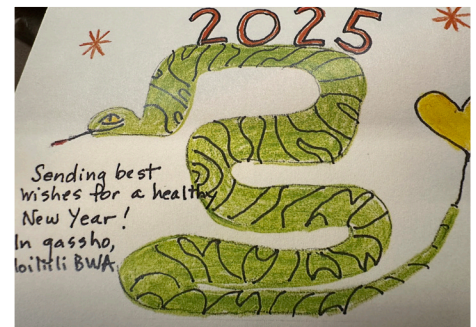 2025
Sending best
wishes for a healthy
New Year!
In gassho,
oiliili BWA